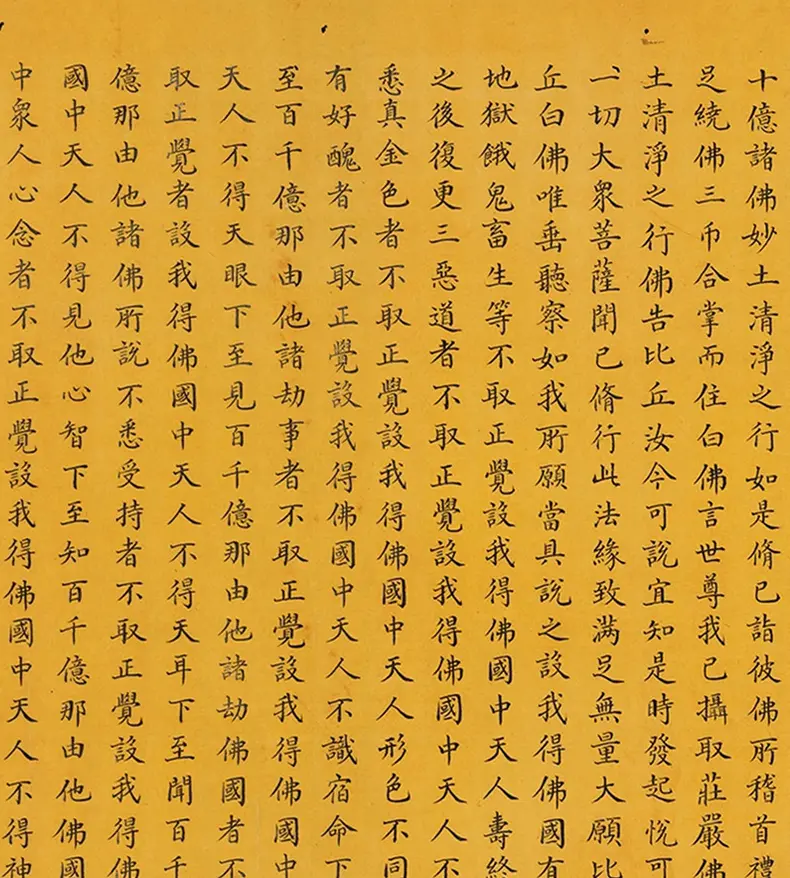 十億諸佛妙土清淨之行如是脩已詣彼佛所稽首禮
足繞佛三帀合掌而住白佛言世尊我已攝取莊嚴佛
土清淨之行佛告比丘汝今可說宜知是時發起悅可
一切大衆菩薩聞已脩行此法緣致滿足無量大願比
丘白佛唯垂聽察如我所願當具說之設我得佛國有
地獄餓鬼畜生等不取正覺設我得佛國中天人壽終
之後復更三惡道者不取正覺設我得佛國中天人不
悉真金色者不取正覺設我得佛國中天人形色不同
有好醜者不取正覺設我得佛國中天人不識宿命下
至百千億那由他諸劫事者不取正覺設我得佛國中
天人不得天眼下至見百千億那由他諸劫佛國者不
取正覺者設我得佛國中天人不得天耳下至聞百千
億那由他諸佛所說不悉受持者不取正覺設我得佛
國中天人不得見他心智下至知百千億那由他佛國
中衆人心念者不取正覺設我得佛國中天人不得神